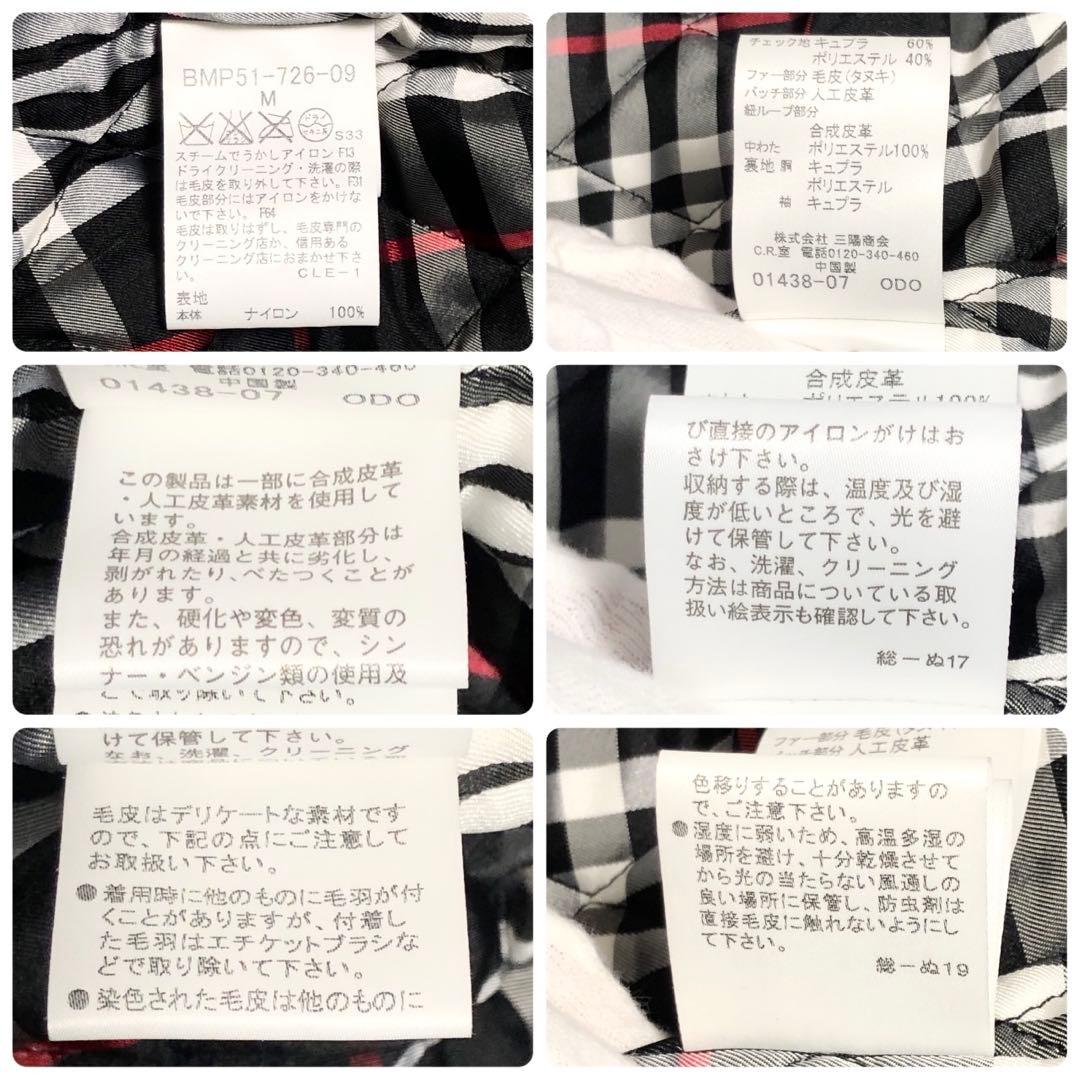 BMP51-726-09
M
ドライ
セキユ系
S33
スチームでうかしアイロン F13
ドライクリーニング・洗濯の際
は毛皮を取り外して下さい。F31
毛皮部分にはアイロンをかけな
いで下さい。F64
毛皮は取りはずし、毛皮専門の
クリーニング店か、信用ある
クリーニング店におまかせ下さ
い。 CLE-1
表地
本体 ナイロン 100%
チェック地 キュプラ 60%
ポリエステル 40%
ファー部分 毛皮(タヌキ)
パッチ部分 人工皮革
紐ループ部分
合成皮革
中わた ポリエステル100%
裏地 胴 キュプラ
ポリエステル
袖 キュプラ
株式会社 三陽商会
C.R.室 電話0120-340-460
中国製
01438-07 ODO
電話0120-340-460
中国製
01438-07 ODO
この製品は一部に合成皮革
・人工皮革素材を使用して
います。
合成皮革・人工皮革部分は
年月の経過と共に劣化し、
剥がれたり、べたつくことが
あります。
また、硬化や変色、変質の
恐れがありますので、シン
ナー・ベンジン類の使用及
合成皮革
ポリエステル100%
び直接のアイロンがけはお
さけ下さい。
収納する際は、温度及び湿
度が低いところで、光を避
けて保管して下さい。
なお、洗濯、クリーニング
方法は商品についている取
扱い絵表示も確認して下さい。
総ーぬ17
けて保管して下さい。
なお、洗濯、クリーニング
毛皮はデリケートな素材です
ので、下記の点にご注意して
お取扱い下さい。
●着用時に他のものに毛羽が付
くことがありますが、付着し
た毛羽はエチケットブラシな
どで取り除いて下さい。
●染色された毛皮は他のものに
ファー部分 毛皮
パッチ部分 人工皮革
色移りすることがありますの
で、ご注意下さい。
●湿度に弱いため、高温多湿の
場所を避け、十分乾燥させて
から光の当たらない風通しの
良い場所に保管し、防虫剤は
直接毛皮に触れないようにし
て下さい。
総ーぬ19